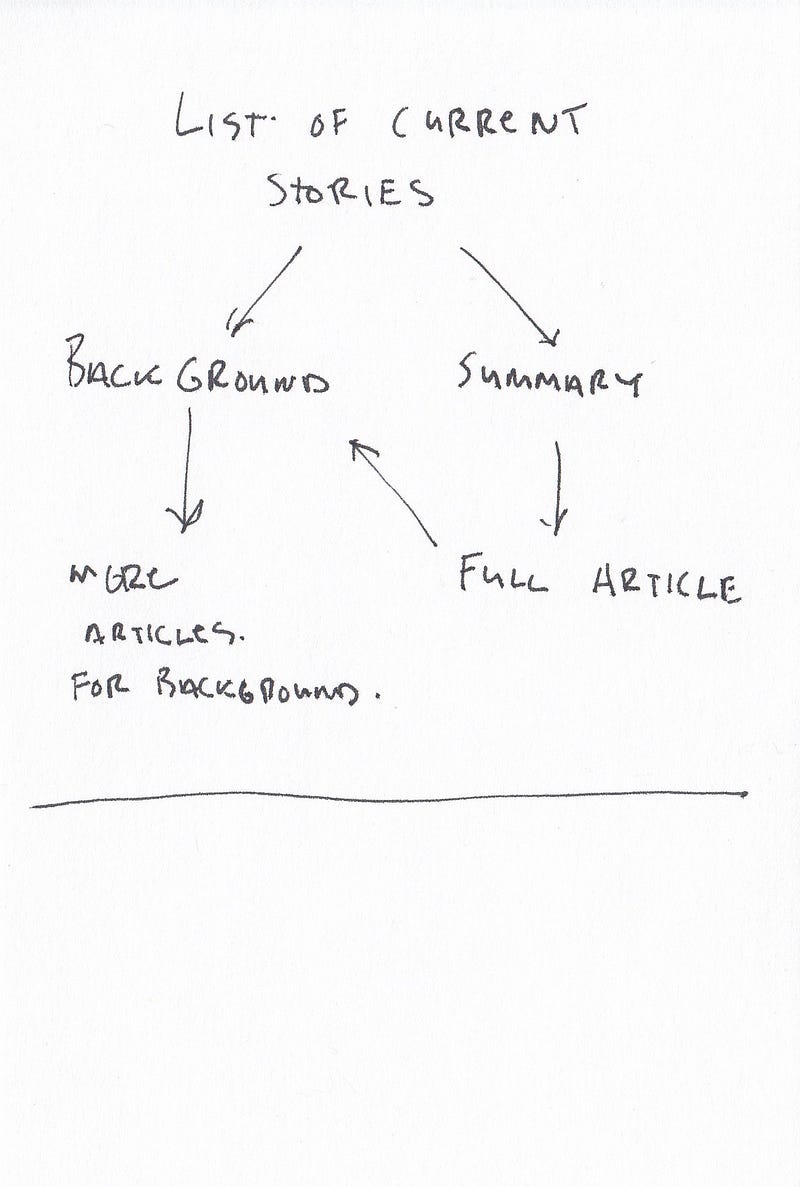 LIST. OF CURRENT
STORIES
BACKGROUND
SUMMARY
MORE
ARTICLES.
FOR BACKGROUND.
FULL ARTICLE